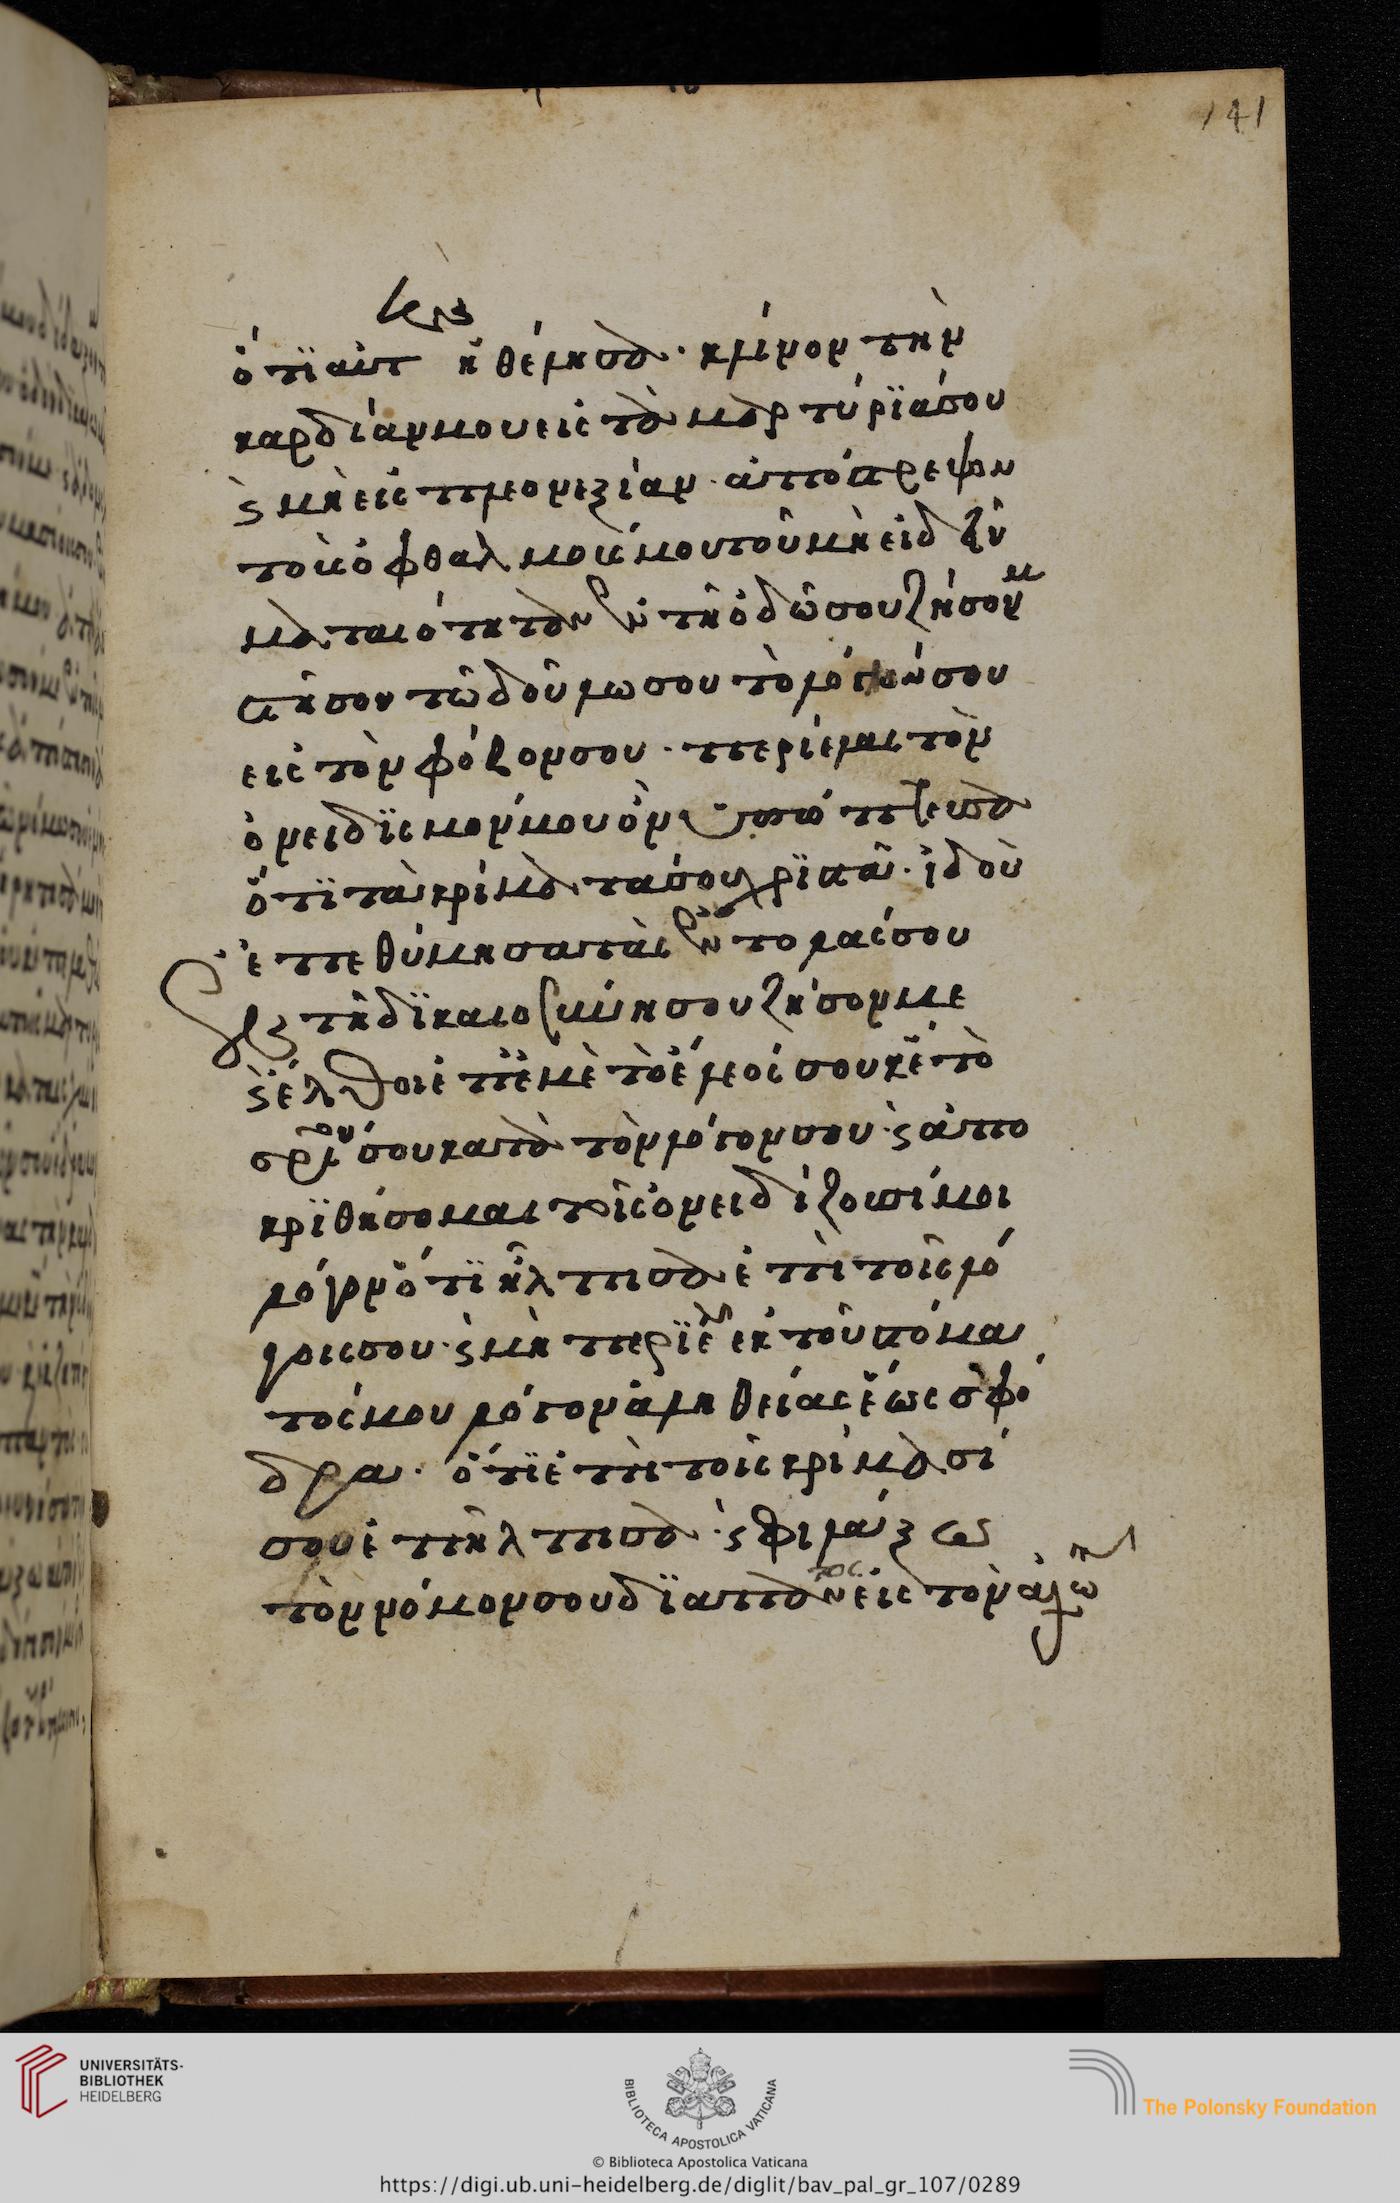 141
ὅτϊ αὐτ ἠθέλησα · κλίνον τὴν
καρδίαν μου εἰς τὰ μαρτύρϊά σου
ϛ μὴ εἰς πλεονεξίαν · ἀπόστρεψον
τοὺς ὀφθαλμούς μου τοῦ μὴ εἰδεῖν
ματαιότητα ἐν τῆ ὁδῶ σου ζῆσον μ
στῆσον τῶ δούλω σου τὸ λόγιόν σου
εἰς τὸν φόβον σου · περίελαι τὸν
ὀνειδϊσμόν μου ὃν ὑπόπτευσα
ὅτϊ τὰ κρίματά σου χρϊστά · ἰδοὺ
ἐπεθύμησα τὰς ἐντολάς σου
ἐν τῆ δϊκαιοσύνη σου ζῆσόν με
ϛ ἔλθοι ἐπ' ἐμὲ τὸ ἔλεός σου κε τὸ
σρϊον σου κατὰ τὸν λόγον σου · ϛ ἀπο
κρϊθήσομαι τοῖς ὀνειδίζουσί μοι
λόγον ὅτϊ ἤλπισα ἐπὶ τοῖς λό
γοις σου · ϛ μὴ περϊέλης ἐκ τοῦ στόμα
τός μου λόγον ἀληθείας ἕως σφό
δρα · ὅτϊ ἐπὶ τοῖς κρίμασί
σου ἐπήλπισα · ϛ φυλάξω
τὸν νόμον σου δϊαπαντος εἰς τὸν αἰῶν
UNIVERSITÄTS-
BIBLIOTHEK
HEIDELBERG
BIBLIOTECA APOSTOLICA VATICANA
© Biblioteca Apostolica Vaticana
The Polonsky Foundation
https://digi.ub.uni-heidelberg.de/diglit/bav_pal_gr_107/0289